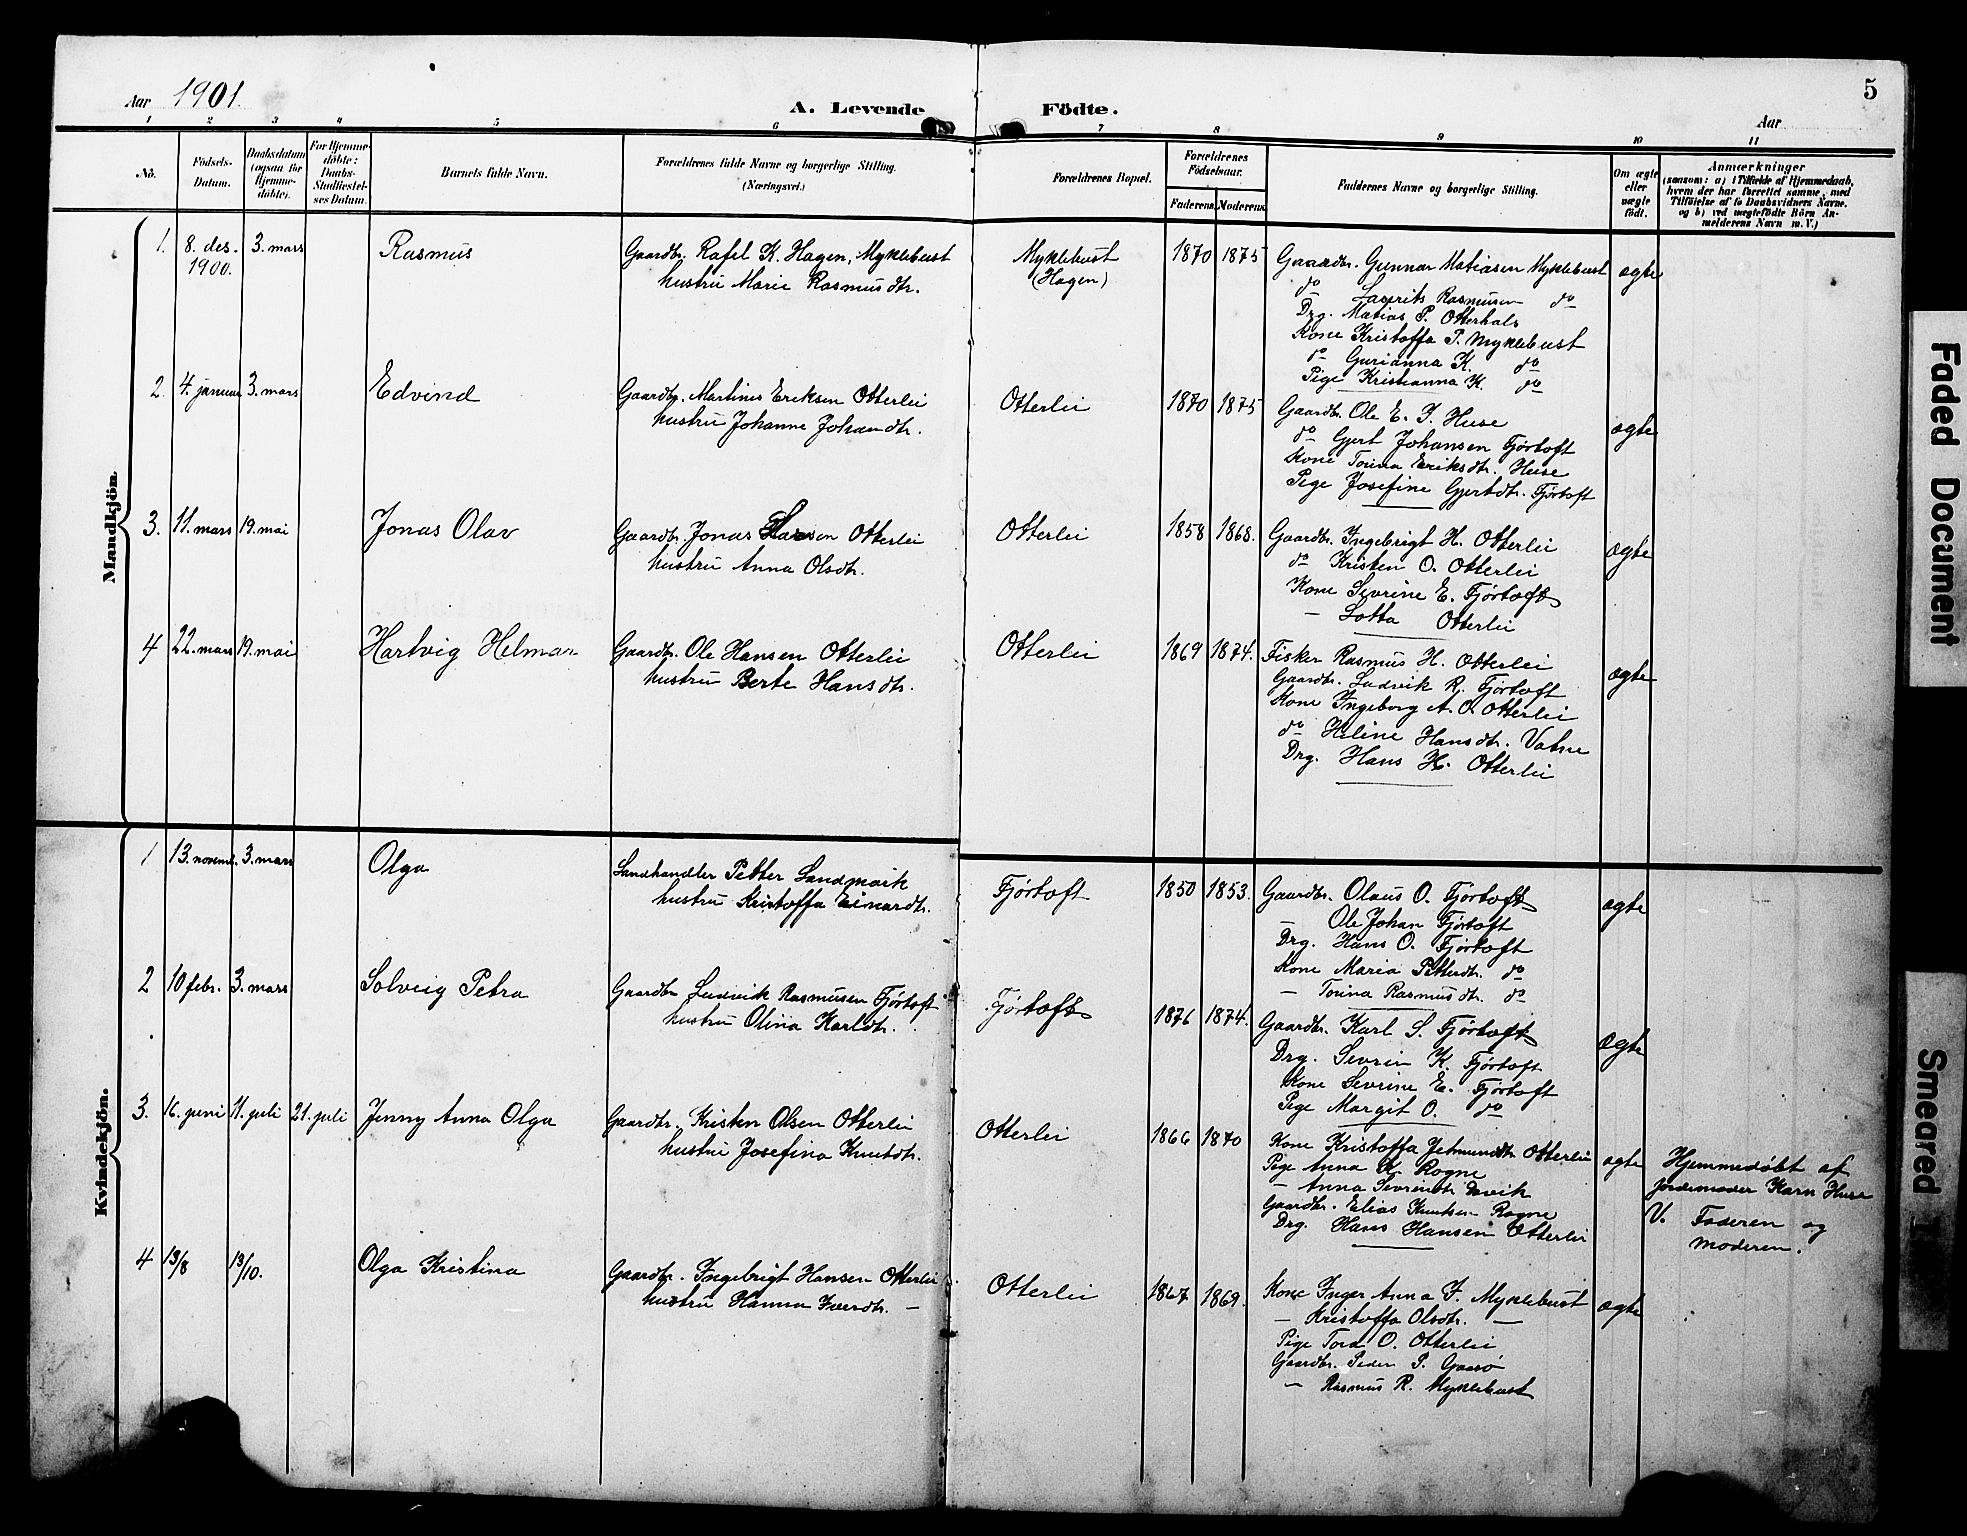 Aar 1901.
A. Levende Födte.
5
Aar
1 2 3 4 5 6 7 8 9 10 11
No.
Födsels-Datum.
Daabsdatum (ogsaa for Hjemme-döbte).
For Hjemme-döbte: Daabs-Stadfæstel-ses Datum.
Barnets fulde Navn.
Forældrenes fulde Navne og borgerlige Stilling.
(Næringsvei.)
Forældrenes Bopæl.
Forældrenes Födselsaar.
Faderens. Moderens.
Faddernes Navne og borgerlige Stilling.
Om ægte eller uægte födt.
Anmærkninger
(saasom: a) i Tilfælde af Hjemmedaab,
hvem der har forrettet samme, med
Tilföielse af to Daabsvidners Navne.
og b) ved uægtefödte Börn An-
melderens Navn m. V.)
Mandkjön.
1. 8. des. 1900. 3. mars Rasmus
Gaardbr. Rafel K. Hagen, Myklebust
hustru Marie Rasmusdtr.
Myklebust
(Hagen)
1870 1875
Gaardbr. Gunnar Matiasen Myklebust
do Lasrits Rasmusen do
Drg. Matias P. Otterhals
Kone Kristoffa P. Myklebust
do Gurianna K. do
Pige Kristianna K. do
ægte
2. 4. januar 3. mars Edvind
Gaardbr. Martinus Eriksen Otterlei
hustru Johanne Johandtr.
Otterlei
1870 1875
Gaardbr. Ole E. I. Huse
do Gjert Johansen Fjørtoft
Kone Torina Eriksdtr. Huse
Pige Josefine Gjertdtr. Fjørtoft
ægte
3. 11. mars 19. mai Jonas Olav
Gaardbr. Jonas Larsen Otterlei
hustru Anna Olsdtr.
Otterlei
1858 1868.
Gaardbr. Ingebrigt H. Otterlei
do Kristen O. Otterlei
Kone Sevrine E. Fjørtoft
— Lotta Otterlei
ægte
4 22. mars 19. mai Hartvig Helmar
Gaardbr. Ole Hansen Otterlei
hustru Berte Hansdtr.
Otterlei
1869 1874.
Fisker Rasmus H. Otterlei
Gaardbr. Ludvik R. Fjørtoft
Kone Ingeborg A. O. Otterlei
do Heline Hansdtr. Vatne
Drg. Hans H. Otterlei
ægte
Kvindekjön.
1 13. novemb. 3. mars Olga
Landhandler Petter Landmark
hustru Kristoffa Einardtr.
Fjørtoft
1850 1853.
Gaardbr. Olaus O. Fjørtoft
— Ole Johan Fjørtoft
Drg. Hans O. Fjørtoft
Kone Maria Petterdtr. do
— Torina Rasmusdtr. do
ægte
2 10 febr. 3. mars Solveig Petra
Gaardbr Ludvik Rasmusen Fjørtoft
hustru Olina Karldtr.
Fjørtoft
1876 1874.
Gaardbr. Karl S. Fjørtoft
Drg. Sevrin K. Fjørtoft
Kone Sevrine E. Fjørtoft
Pige Margit O. do
Ægte
3. 16. juni 11. juli 21. juli Jenny Anna Olga
Gaardbr. Kristen Olsen Otterlei
hustru Josefina Knutdtr.
Otterlei
1866 1870
Kone Kristoffa Jetmundtr. Otterlei
Pige Anna K. Rogne
— Anna Sevrindtr.
Gaardbr. Elias Knutsen Rogne
Drg. Hans Hansen Otterlei
ægte
Hjemmedøbt af
jordemoder Karn Huse
V. Faderen og
moderen.
4 13/8 13/10. Olga Kristina
Gaardbr. Ingebrigt Hansen Otterlei
hustru Hanna Iverdtr. —
Otterlei
1867 1869.
Kone Inger Anna I. Myklebust
— Kristoffa Olsdtr. —
Pige Tora O. Otterlei
Gaardbr. Peder P. Gaasø
— Rasmus R. Myklebust
ægte
Faded Document
Smeared